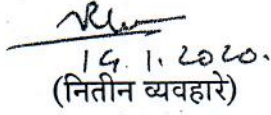 14.1.2020.
(नितीन व्यवहारे)